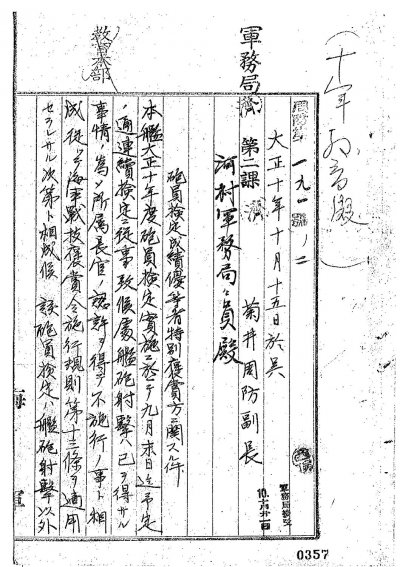 十年
教育本部
軍務局 済 第二課 済
周防 第一九一號ノ二
大正十年十月十五日於呉
菊井周防副長
河村軍務局々員殿
砲員検定成績優等者特別褒賞方ニ関スル件
本艦大正十年度砲員検定実施ニ於テ九月末日迄予定
ノ通連續検定従事致候處艦砲射撃ハ已ヲ得ザル
事情ノ為メ所属長官ノ認許ヲ得テ不施行ノ事ト相
成従ツテ海軍戦技褒賞令施行規則第十三條ヲ適用
セラレザル次第ト相成候 該砲員検定ハ艦砲射撃以外
海
軍
軍務局接受
10.
0357